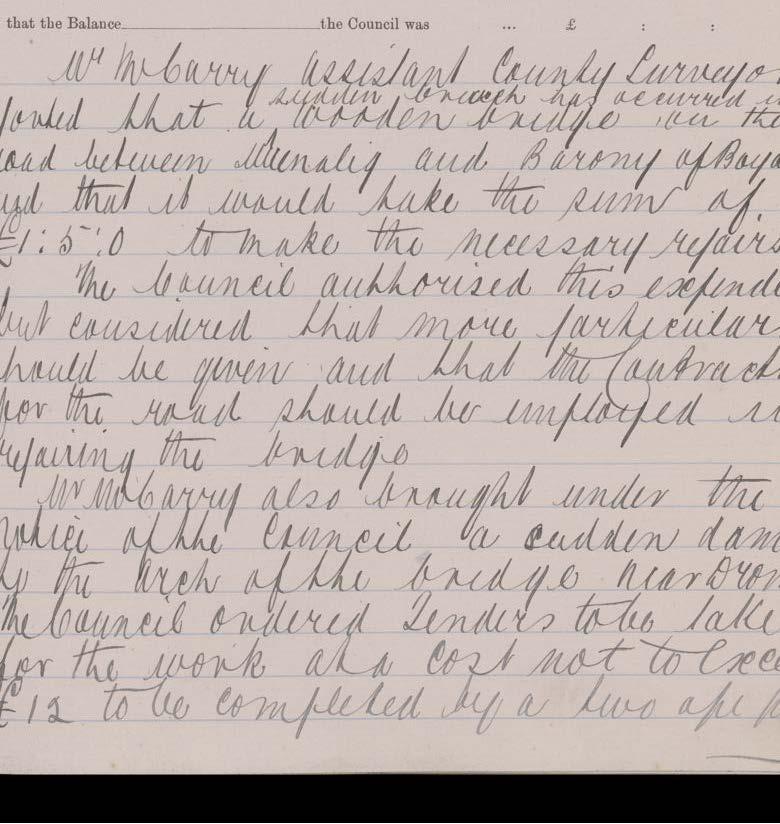 that the Balance the Council was ... £ : :
Mr McCarry assistant County Surveyor
sudden breach has occurred in
ported that a wooden bridge on the
oad between and Barony of Boya
and that it would take the sum of
£1:5:0 to make the necessary repairs
The Council authorised this expendi
but considered that more particular
hould be given and that the Contract
for the road should be employed in
repairing the bridge
Mr McCarry also brought under the
notice of the Council a sudden dam
to the Arch of the bridge near Dro
The Council ordered Tenders to be take
for the work at a cost not to Exce
£12 to be completed by a two